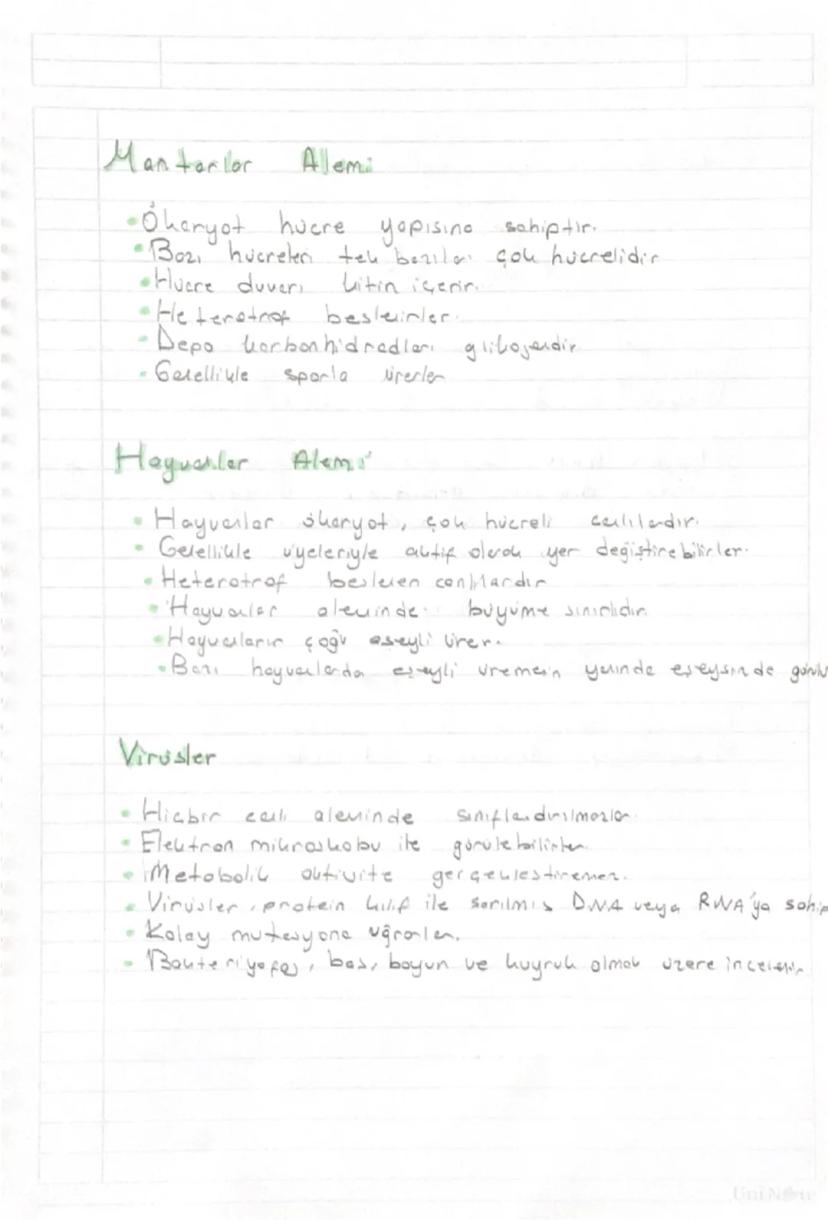 Mantarlar Alemi
• Ökaryot hücre yapısına sahiptir.
• Bazı hücreleri tek bazıları çok hücrelidir
• Hücre duvarı kitin içerir.
• Heterotrof beslenirler.
• Depo karbonhidradları glikojendir
• Genellikle sporla ürerler
Hayvanlar Alemi
• Hayvanlar ökaryot, çok hücreli canlılardır.
• Genellikle üyeleriyle aktif olarak yer değiştirebilirler.
• Heterotrof beslenen canlılardır
• Hayvanlar aleminde büyüme sınırlıdır.
• Hayvanların çoğu eşeyli ürer.
• Bazı hayvanlarda eşeyli üremenin yanında eşeysizde görülü
Virüsler
• Hiçbir canlı aleminde sınıflandırılmazlar.
• Elektron mikroskobu ile görülebilirler.
• Metabolik aktivite gerçekleştiremez.
• Virüsler, protein kılıf ile sarılmış DNA veya RNA'ya sahip
• Kolay mutasyona uğrarlar.
• Bakteriyofaj, baş, boyun ve kuyruk olmak üzere incelenir.
UniNote